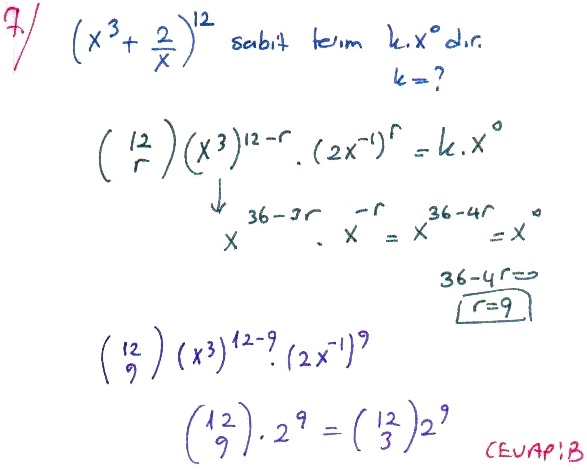 7/ (x³ + 2/x)¹² sabit terim k.x⁰ dır.
k=?
(12 r) (x³)¹²⁻ʳ . (2x⁻¹)ʳ = k.x⁰
↓
x³⁶⁻³ʳ . x⁻ʳ = x³⁶⁻⁴ʳ = x⁰
36-4r=0
r=9
(12 9) (x³)¹²⁻⁹ . (2x⁻¹)⁹
(12 9) . 2⁹ = (12 3) 2⁹
CEVAP:B